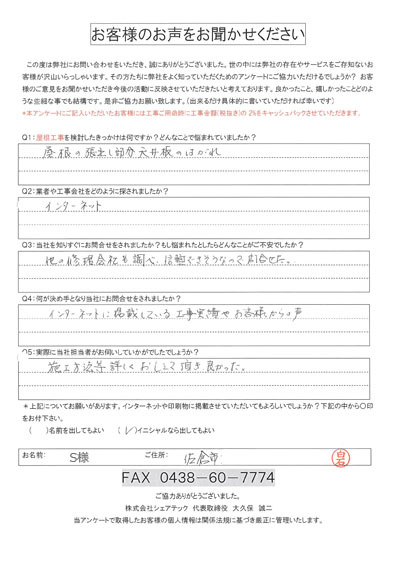 お客様のお声をお聞かせください
この度は弊社にお問い合わせをいただき、誠にありがとうございました。世の中には弊社の存在やサービスをご存知ないお
客様が沢山いらっしゃいます。その方たちに弊社をよく知っていただくためのアンケートにご協力いただけるでしょうか？ お客
様のご意見をお聞かせいただき今後の活動に反映させていただきたいと考えております。良かったこと、嬉しかったことどのよ
うな些細な事でも結構です。是非ご協力お願い致します。（出来るだけ具体的に書いていただければ幸いです）
*本アンケートにご記入いただいたお客様には工事ご依頼時に工事金額(税抜き)の 2%をキャッシュバックさせていただきます。
Q1:屋根工事を検討したきっかけは何ですか？どんなことで悩まれていましたか？
屋根の張出し部分天井板のはがれ
Q2:業者や工事会社をどのように探されましたか？
インターネット
Q3:当社を知りすぐにお問合せをされましたか？もし悩まれたとしたらどんなことがご不安でしたか？
他の修理会社も調べ、信頼できそうなので問合せた。
Q4:何が決め手となり当社にお問合せをされましたか？
インターネットに掲載している工事実績やお客様からの声
Q5:実際に当社担当者がお伺いしていかがでしたでしょうか？
施工方法等詳しくお話して頂き良かった。
＊上記についてお願いがあります。インターネットや印刷物に掲載させていただいてもよろしいでしょうか？下記の中から〇印
をお付下さい。
（　）名前を出してもよい （✓）イニシャルなら出してもよい
お名前: S様 ご住所: 佐倉市 白石
FAX 0438-60-7774
ご協力ありがとうございました。
株式会社シェアテック 代表取締役 大久保 誠二
当アンケートで取得したお客様の個人情報は関係法規に基づき厳正に管理いたします。